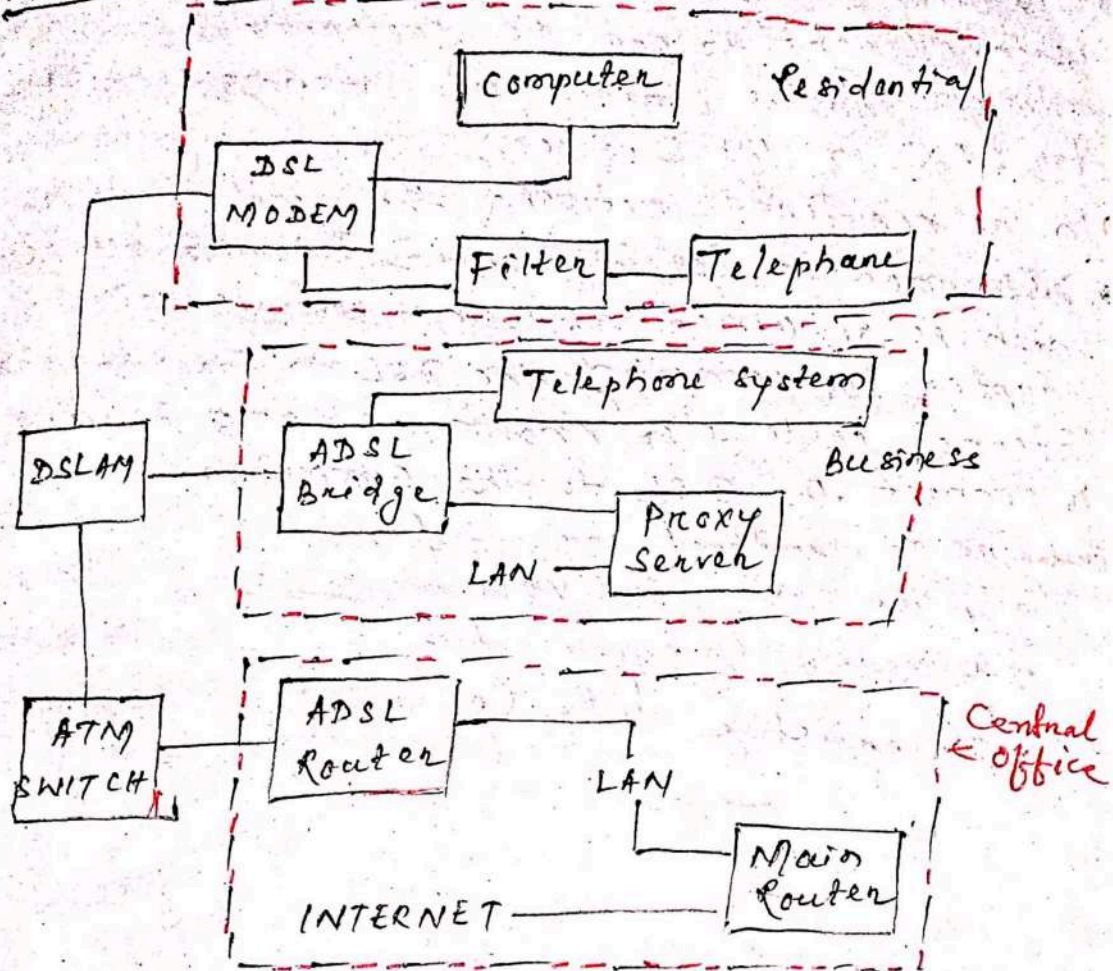 Computer
Residential
DSL
MODEM
Filter
Telephone
Telephone system
DSLAM
ADSL
Bridge
Business
Proxy
Server
LAN
ATM
SWITCH
ADSL
Router
Central
← Office
LAN
Main
Router
INTERNET